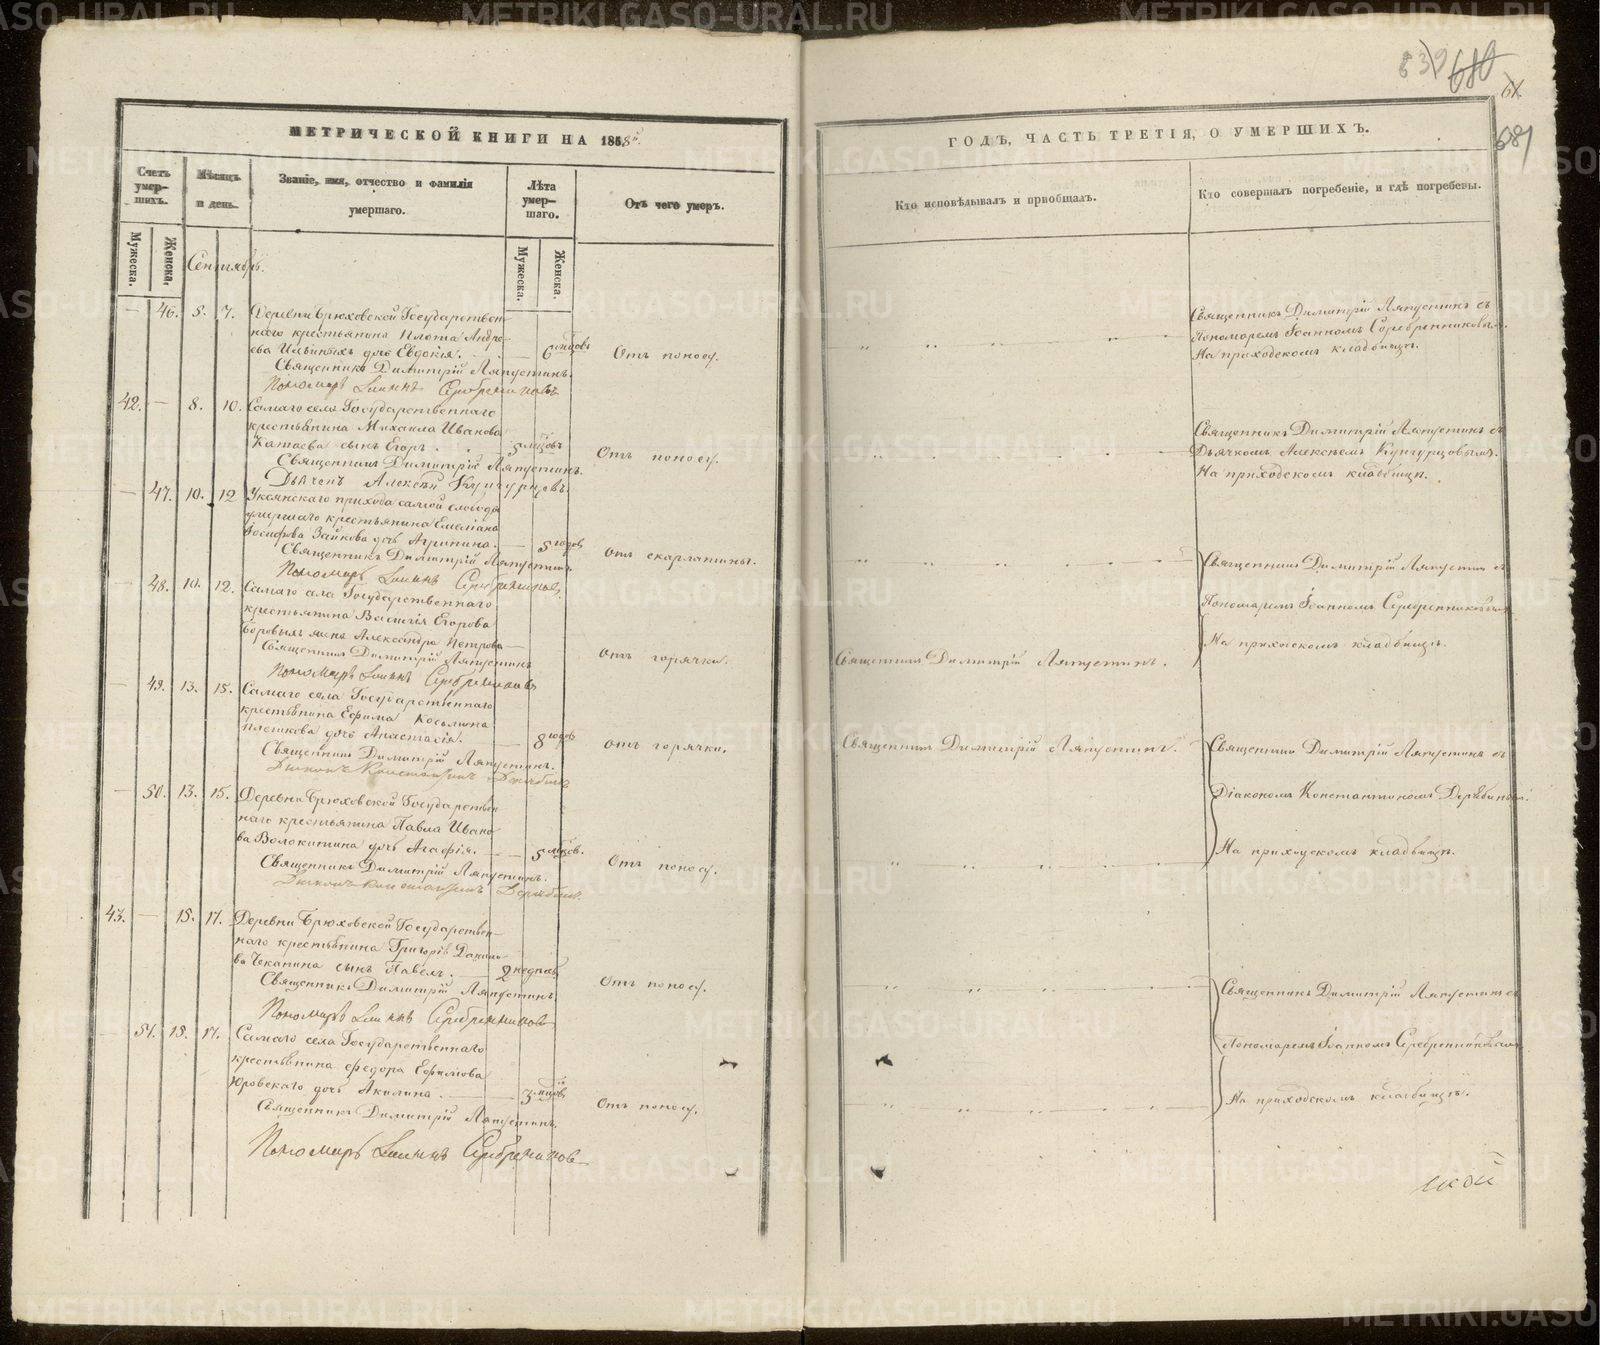 МЕТРИЧЕСКОЙ КНИГИ НА 1858й
Счетъ умер-шихъ.
Мѣсяцъ и день.
Званіе, имя, отчество и фамилія умершаго.
Лѣта умер-шаго.
Отъ чего умеръ.
Мужеска.
Женска.
Мужеска.
Женска.
Сентябрь.
— 46. 8. 7. Деревни Брюховской Государствен
наго крестьянина
ева дочь Евдокія. 6 мѣсцовъ Отъ поносу.
Священникъ Димитрій Ляпустинъ.
Пономарь Іоаннъ Серебренниковъ
42. — 8. 10. Самаго села Государственнаго
крестьянина Михаила Иванова
Катаева сынъ Егоръ. 5 мѣсцовъ Отъ поносу.
Священникъ Димитрій Ляпустинъ.
Дьячекъ Алексѣй Кунгурцовъ.
— 47. 10. 12 Уксянскаго прихода самой слободы
умершаго крестьянина Емеліана
Іосифова Зайкова дочь Агрипина. — 5 годовъ Отъ скарлатины.
Священникъ Димитрій Ляпустинъ.
Пономарь Іоаннъ Серебренниковъ.
— 48. 10. 12. Самаго села Государственнаго
крестьянина Василія Егорова
Боровыхъ жена Александра Петрова — Отъ горячки.
Священникъ Димитрій Ляпустинъ
Пономарь Іоаннъ Серебренниковъ
— 49. 13. 15. Самаго села Государственнаго
крестьянина Ефима Косьмина
Плешкова дочь Анастасія. — 8 годовъ Отъ горячки.
Священникъ Димитрій Ляпустинъ.
Діаконъ Константинъ Дерябинъ
— 50. 13. 15. Деревни Брюховской Государствен
наго крестьянина Павла Ивано
ва Волокитина дочь Агафія. — 5 мѣсцов. Отъ поносу.
Священникъ Димитрій Ляпустинъ.
Діаконъ Константинъ Дерябинъ.
43. — 15. 17. Деревни Брюховской Государствен-
наго крестьянина Григорія Данило
ва Чекалина сынъ Павелъ. — 2 недѣль Отъ поносу.
Священникъ Димитрій Ляпустинъ.
Пономарь Іоаннъ Серебренниковъ
— 51. 15. 17. Самаго села Государственнаго
крестьянина Федора Ефимова
Юровскаго дочь Акилина. — 3 мѣсцовъ Отъ поносу.
Священникъ Димитрій Ляпустинъ.
Пономарь Іоаннъ Серебренниковъ
639 680
681
ГОДЪ, ЧАСТЬ ТРЕТІЯ, О УМЕРШИХЪ.
Кто исповѣдывалъ и пріобщалъ.
Кто совершалъ погребеніе, и гдѣ погребены.
Священникъ Димитрій Ляпустинъ съ
Пономаремъ Іоанномъ Серебренниковымъ.
На приходскомъ кладбищѣ.
Священникъ Димитрій Ляпустинъ съ
Дьячкомъ Алексѣемъ Кунгурцовымъ.
На приходскомъ кладбищѣ.
Священникъ Димитрій Ляпустинъ съ
Пономаремъ Іоанномъ Серебренниковымъ
На приходскомъ кладбищѣ.
Священникъ Димитрій Ляпустинъ.
Священникъ Димитрій Ляпустинъ.
Священникъ Димитрій Ляпустинъ съ
Діакономъ Константиномъ Дерябинымъ.
На приходскомъ кладбищѣ.
Священникъ Димитрій Ляпустинъ съ
Пономаремъ Іоанномъ Серебренниковымъ
На приходскомъ кладбищѣ.
ской
METRIKI.GASO-URAL.RU